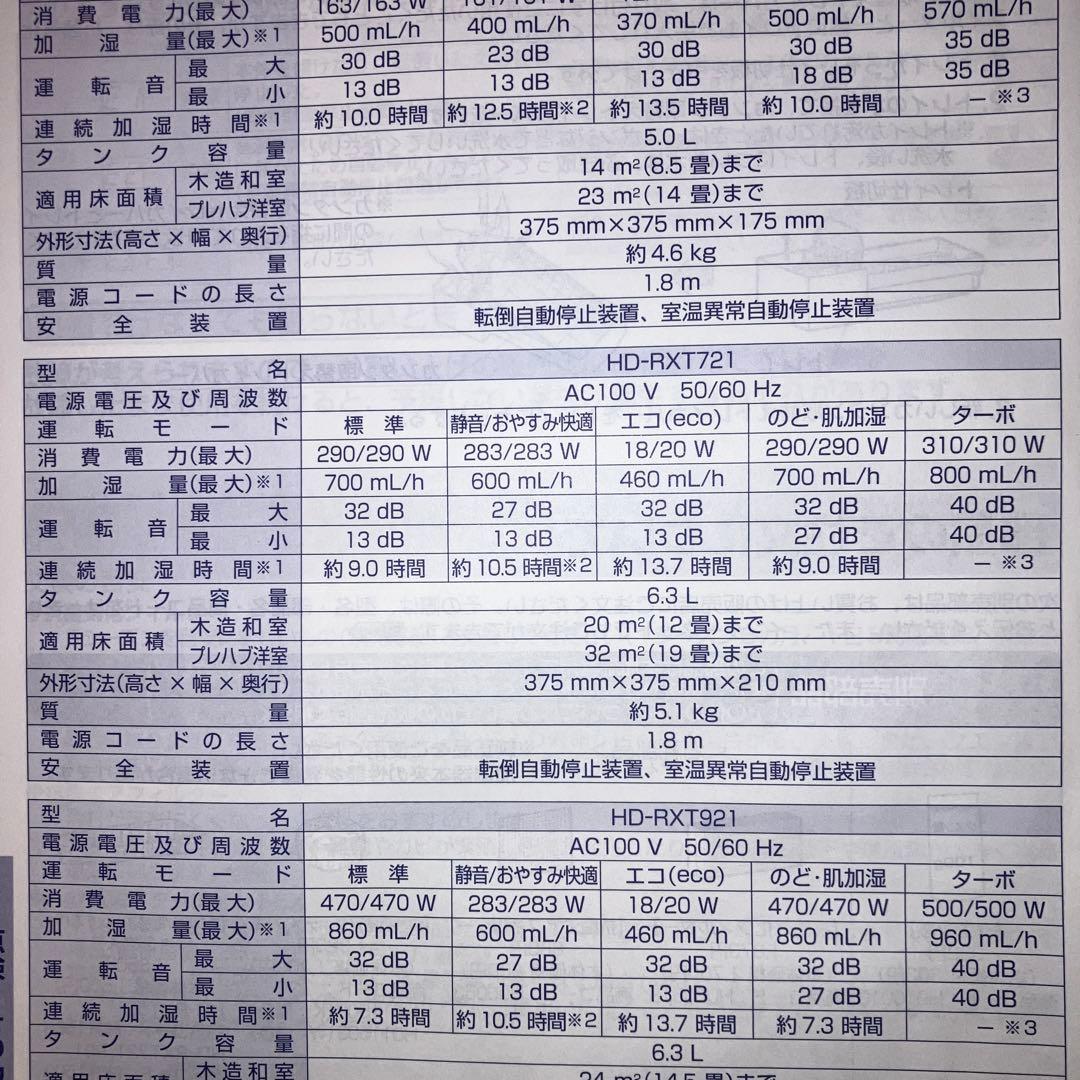 消費電力(最大) 163/163 W
加湿量(最大)※1 500 mL/h 400 mL/h 370 mL/h 500 mL/h 570 mL/h
運転音 最大 30 dB 23 dB 30 dB 30 dB 35 dB
最小 13 dB 13 dB 13 dB 18 dB 35 dB
連続加湿時間※1 約10.0時間 約12.5時間※2 約13.5時間 約10.0時間 －※3
タンク容量 5.0 L
適用床面積 木造和室 14 m²(8.5畳)まで
プレハブ洋室 23 m²(14畳)まで
外形寸法(高さ×幅×奥行) 375 mm×375 mm×175 mm
質量 約4.6 kg
電源コードの長さ 1.8 m
安全装置 転倒自動停止装置、室温異常自動停止装置
型名 HD-RXT721
電源電圧及び周波数 AC100 V 50/60 Hz
運転モード 標準 静音/おやすみ快適 エコ(eco) のど・肌加湿 ターボ
消費電力(最大) 290/290 W 283/283 W 18/20 W 290/290 W 310/310 W
加湿量(最大)※1 700 mL/h 600 mL/h 460 mL/h 700 mL/h 800 mL/h
運転音 最大 32 dB 27 dB 32 dB 32 dB 40 dB
最小 13 dB 13 dB 13 dB 27 dB 40 dB
連続加湿時間※1 約9.0時間 約10.5時間※2 約13.7時間 約9.0時間 －※3
タンク容量 6.3 L
適用床面積 木造和室 20 m²(12畳)まで
プレハブ洋室 32 m²(19畳)まで
外形寸法(高さ×幅×奥行) 375 mm×375 mm×210 mm
質量 約5.1 kg
電源コードの長さ 1.8 m
安全装置 転倒自動停止装置、室温異常自動停止装置
型名 HD-RXT921
電源電圧及び周波数 AC100 V 50/60 Hz
運転モード 標準 静音/おやすみ快適 エコ(eco) のど・肌加湿 ターボ
消費電力(最大) 470/470 W 283/283 W 18/20 W 470/470 W 500/500 W
加湿量(最大)※1 860 mL/h 600 mL/h 460 mL/h 860 mL/h 960 mL/h
運転音 最大 32 dB 27 dB 32 dB 32 dB 40 dB
最小 13 dB 13 dB 13 dB 27 dB 40 dB
連続加湿時間※1 約7.3時間 約10.5時間※2 約13.7時間 約7.3時間 －※3
タンク容量 6.3 L
適用床面積 木造和室 24 m²(14.5畳)まで